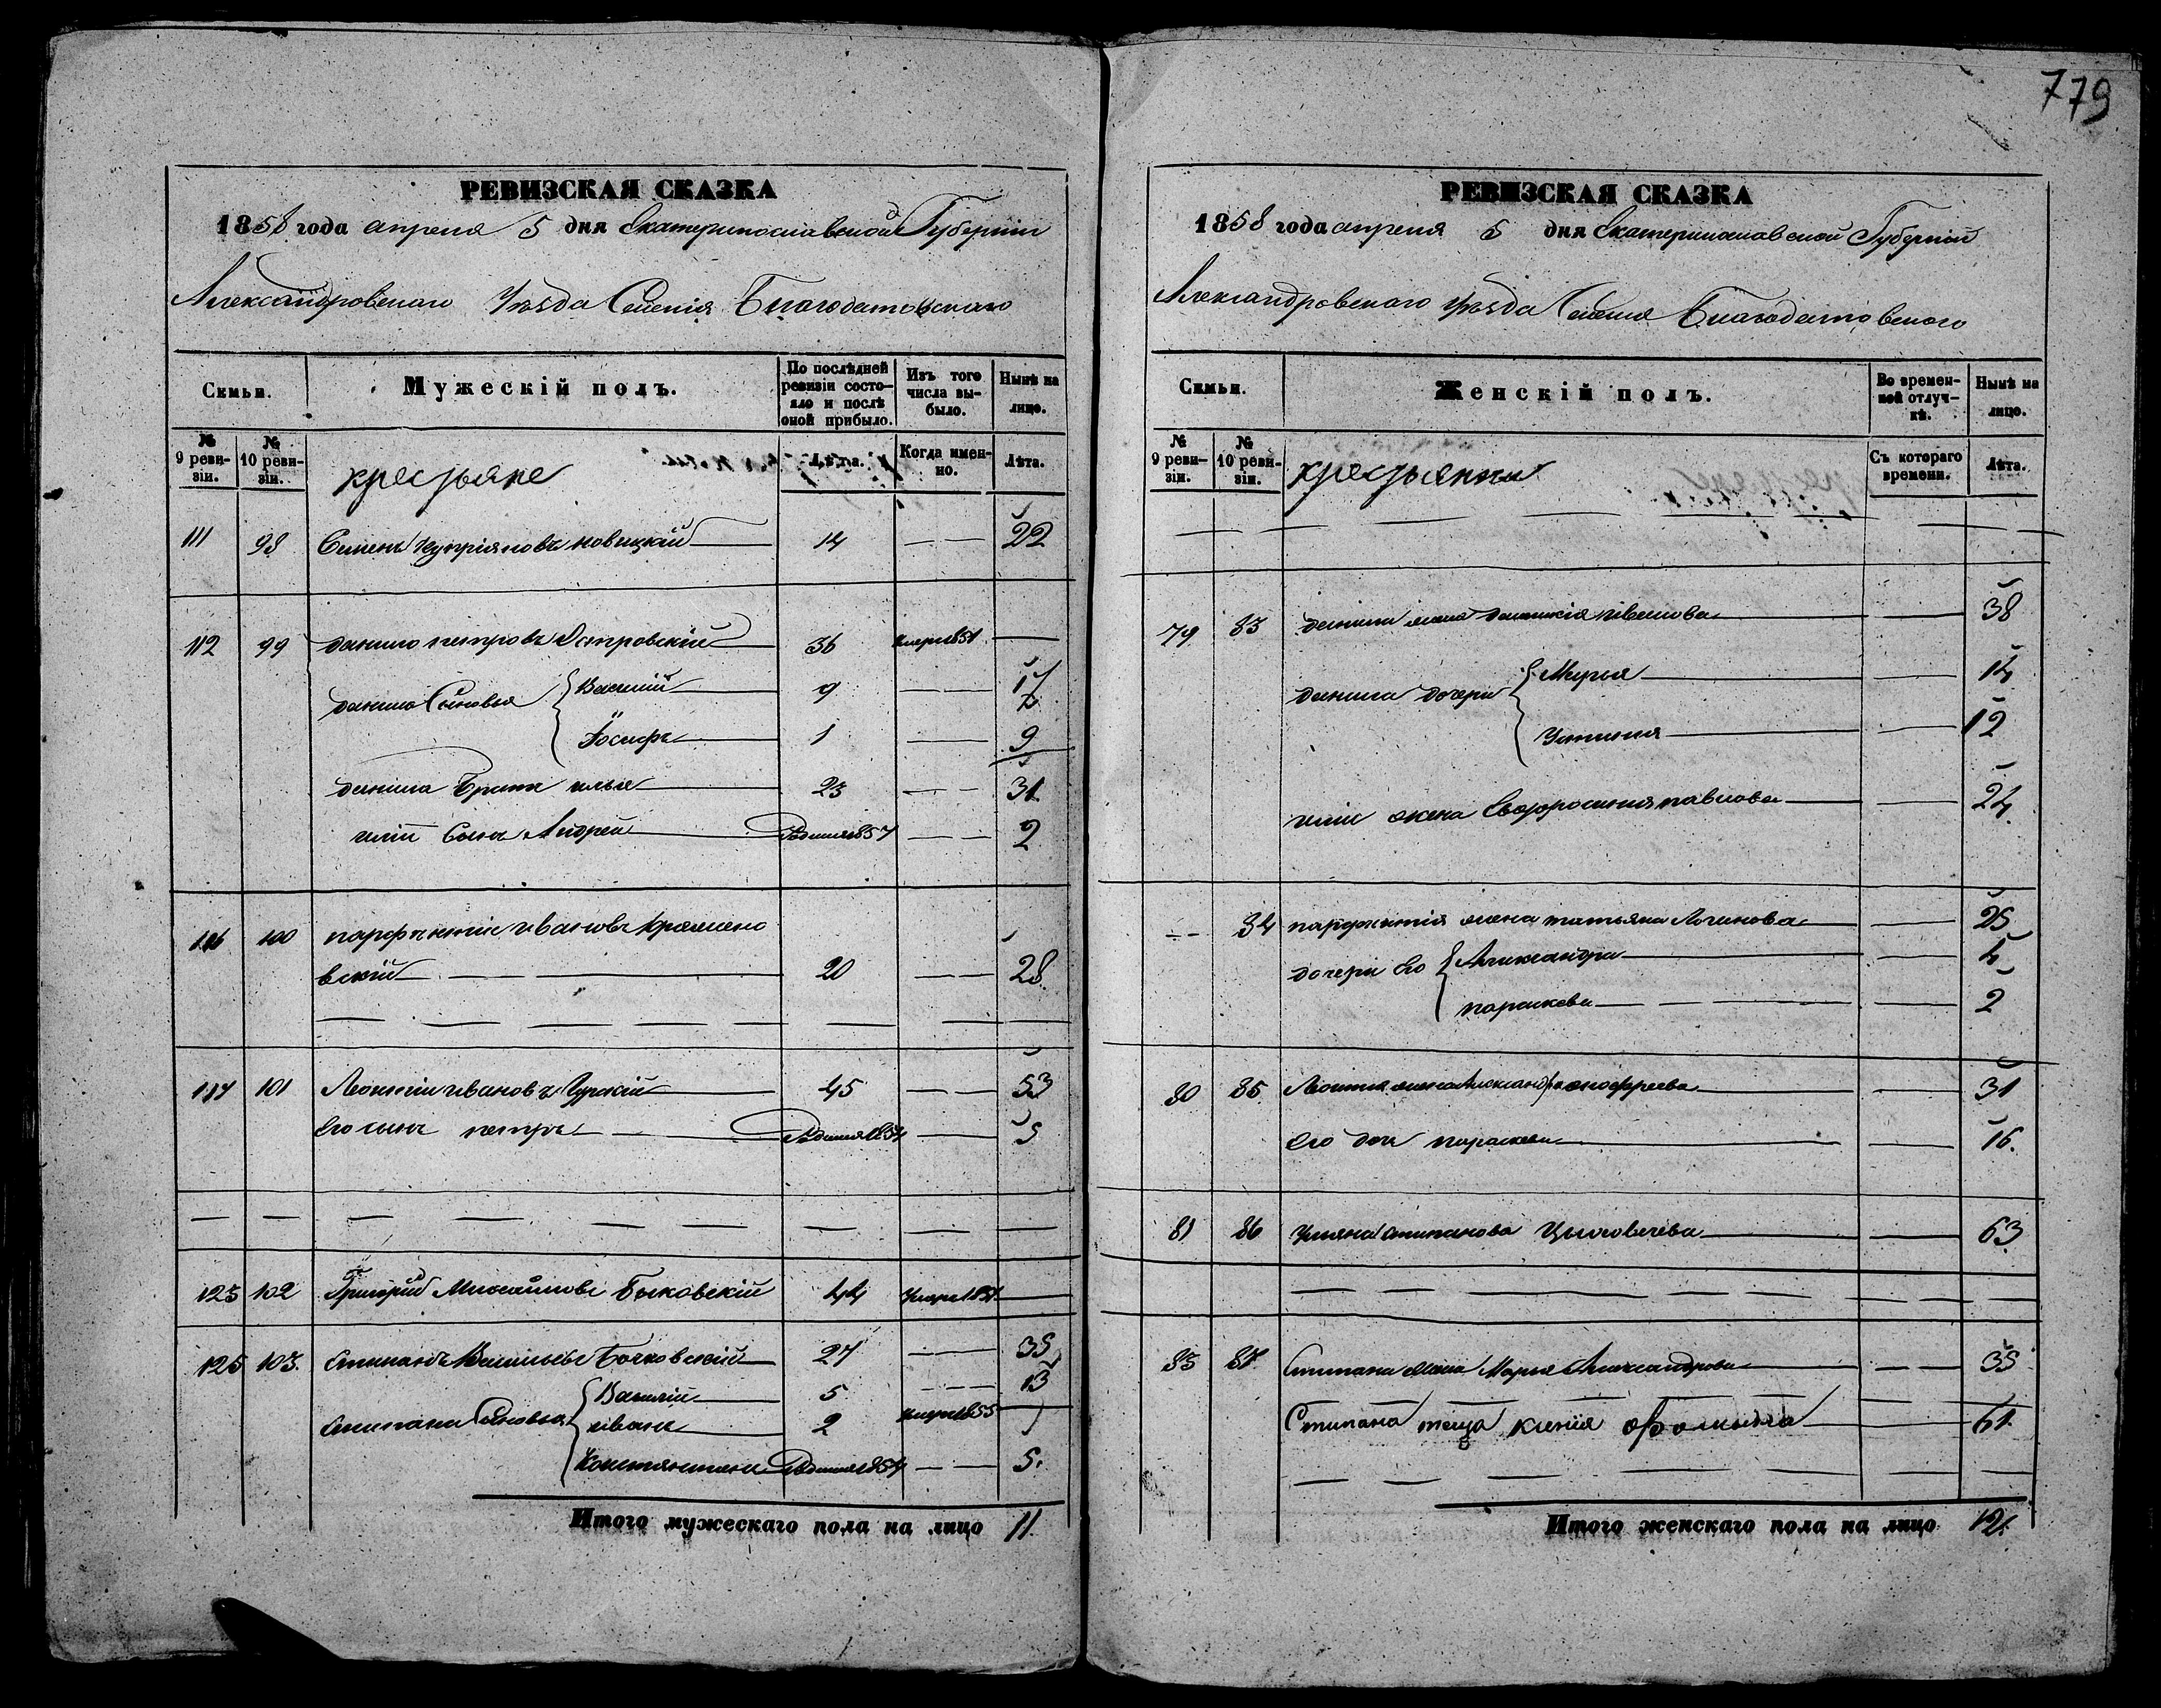 779
РЕВИЗСКАЯ СКАЗКА
1858 года апреля 5 дня Екатеринославской Губерніи
Александровскаго Уѣзда Селенія Благодатовскаго
Семьи.
Мужескій полъ.
По послѣдней ревизіи состояло и послѣ оной прибыло.
Изъ того числа выбыло.
Нынѣ на лицо.
№ 9 ревизіи.
№ 10 ревизіи.
крестьяне
Лѣта.
Когда именно.
Лѣта.
111 98 Семенъ Купріяновъ Новицкій 14 22
112 99 данило петровъ Петровскій 36 умеръ 1851
данила Сыновья Василій 9 17
Іосифъ 1 9
данила Братъ илья 23 31
иліи Сынъ Андрей Родился 1857 2
116 100 парфентій ивановъ
вскій 20 28
117 101 Леонтій ивановъ Гурскій 45 53
его сынъ петръ Родился 1854 5
123 102 Григорій Михайловъ Быковскій 44 умеръ 1851
125 103. степанъ Васильевъ Бочковскій 27 35
степана Сыновья Василій 5 13
иванъ 2 умеръ 1855
Константинъ Родился 1854 5.
Итого мужескаго пола на лицо 11.
РЕВИЗСКАЯ СКАЗКА
1858 года апреля 5 дня Екатеринославской Губерніи
Александровского Уѣзда Селенія Благодатовского
Семьи.
Женскій полъ.
Во временной отлучкѣ.
Нынѣ на лицо.
№ 9 ревизіи.
№ 10 ревизіи.
крестьянки
Съ котораго времени.
Лѣта.
79 83 данила жена 38
данила дочери Марья 14
Устинія 12
иліи жена Евфросинія павлова 24
84 парфентія жена татьяна Логинова 25
дочери его Александра 4
параскева 2
80 85 Леонтія жена Александра онофреева 31
его дочь параскева 16.
81 86 Ульяна степанова 63
83 87. Степана жена Марья Александрова 35
Степана теща ксенія Фомина 61.
Итого женскаго пола на лицо 12.